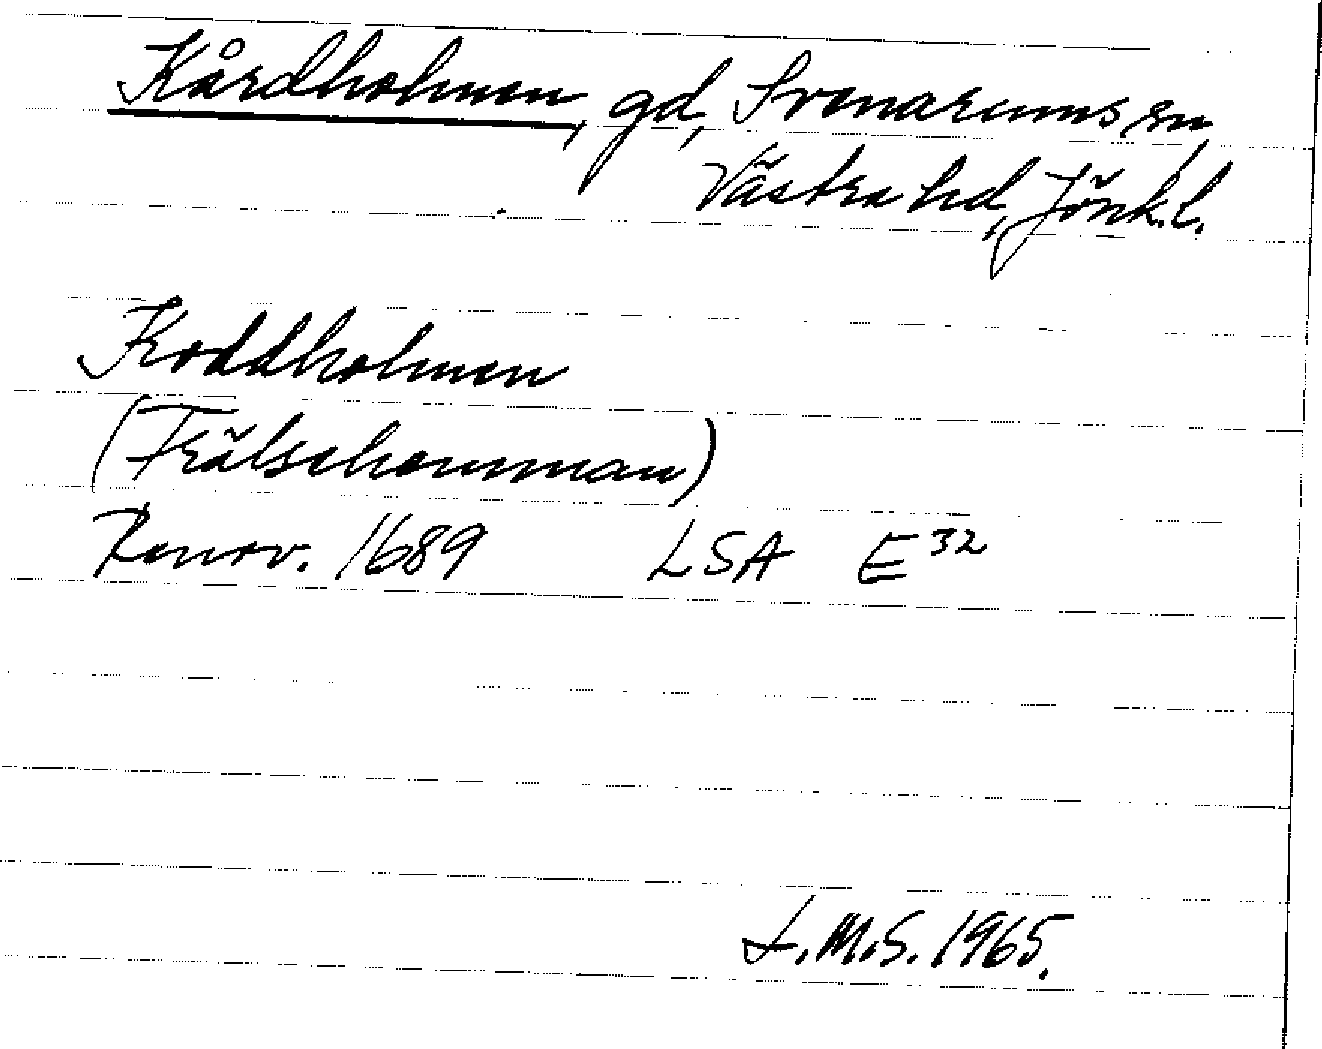 Kårdholmen, gd, Svenarums sn,
Västra hd, Jönk.l.
Koddholmen
(Frälsehemman)
Renov. 1689 LSA E 32
L.M.S. 1965.